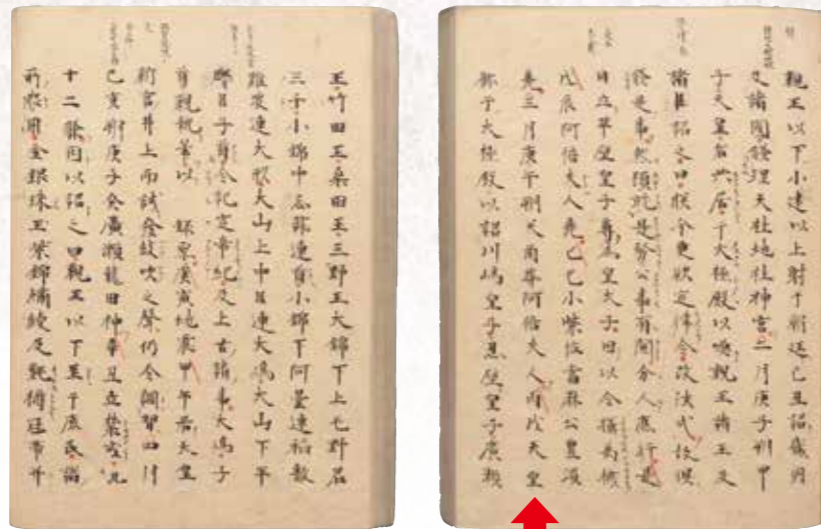 親王以下小建以上射于朝廷己丑詔畿內
及諸國修理天社地社神宮二月庚子朔甲
子天皇皇后共居于大極殿以喚親王諸王及
諸臣詔之曰朕今更欲定律令改法式故俱
修是事然頓就是務公事有闕分人應行是
日立草壁皇子尊為皇太子因以令攝萬機
戊辰阿倍夫人薨己巳小紫位當麻公豐濱
薨三月庚午朔癸酉葬阿倍夫人丙戌天皇
御于大極殿以詔川嶋皇子忍壁皇子廣瀨
王竹田王桑田王三野王大錦下上毛野君
三千小錦中忌部連首小錦下阿曇連稻敷
難波連大形大山上中臣連大嶋大山下平
群臣子首令記定帝紀及上古諸事大嶋子
首親執筆以錄焉庚寅地震甲午天皇
新宮井上而試發鼓吹之聲仍令調習四月
己亥朔庚子祭廣瀨龍田神辛丑立禁式九
十二條因以詔之曰親王以下至于庶民諸
所服用金銀珠玉紫錦繡綾及氈褥冠帶并